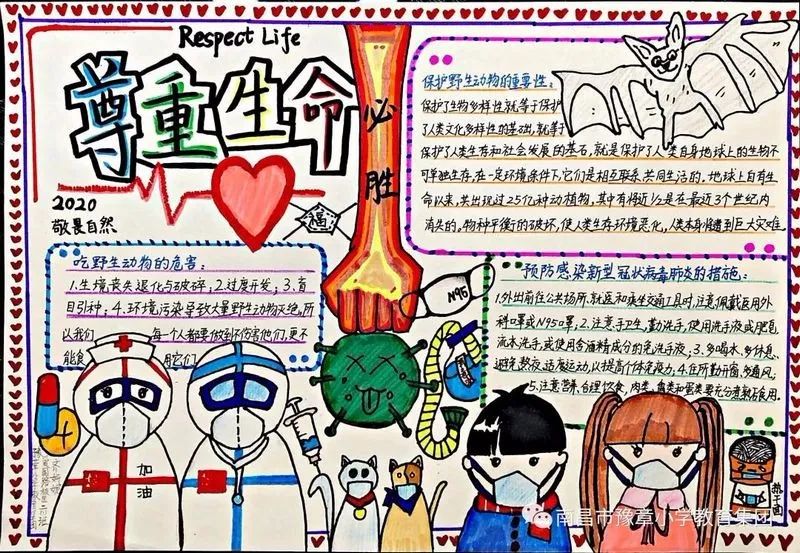 Respect Life
尊重生命
必
胜
2020
敬畏自然
福
保护野生动物的重要性:
保护了生物多样性就等于保护
了人类文化多样性的基础,就等于
保护了人类生存和社会发展的基石,就是保护了人类自身地球上的生物不
可单独生存,在一定环境条件下,它们是相互联系、共同生活的,地球上自有生
命以来,共出现过25亿种动植物,其中有将近1/2是在最近3个世纪内
消失的。物种平衡的破坏,使人类生存环境恶化,人类本身将遭到巨大灾难
吃野生动物的危害:
1.生境丧失退化与破碎;2.过度开发;3.盲
目引种;4.环境污染导致大量野生动物灭绝,所
以我们 每一个人都要做到不伤害他们,更不
能食 用它们
N95
预防感染新型冠状病毒肺炎的措施:
1.外出前往公共场所、就医和乘坐交通工具时,注意佩戴医用外
科口罩或N95口罩;2.注意手卫生,勤洗手,使用洗手液或肥皂
流水洗手,或使用含酒精成分的免洗手液;3.多喝水、多休息、
避免熬夜、适度运动,以提高个体免疫力;4.住所勤开窗,多通风;
5.注意营养,合理饮食,肉类、禽类和蛋类要充分煮熟后食用.
加
油
热干面
南昌市豫章小学教育集团